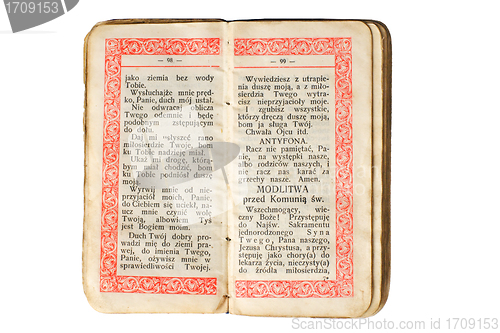 — 98 —
jako ziemia bez wody
Tobie.
Wysłuchajże mnie pręd-
ko, Panie, duch mój ustał.
Nie odwracaj oblicza
Twego odemnie i będę
podobnym zstępującym
do dołu.
Daj mi słyszeć rano
miłosierdzie Twoje, bom
ku Tobie nadzieję miał.
Ukaż mi drogę, którą-
bym miał chodzić, bom
ku Tobie podniósł duszę
moją.
Wyrwij mnie od nie-
przyjaciół moich, Panie,
do Ciebiem się uciekł, na-
ucz mnie czynić wolę
Twoją, albowiem Tyś
jest Bogiem moim.
Duch Twój dobry pro-
wadzi mię do ziemi pra-
wej, do imienia Twego,
Panie, ożywisz mnie w
sprawiedliwości Twojej.
— 99 —
Wywiedziesz z utrapie-
nia duszę moją, a z miło-
sierdzia Twego wytra-
cisz nieprzyjacioły moje.
I zgubisz wszystkie,
którzy dręczą duszę moją,
bom ja sługa Twój.
Chwała Ojcu itd.
ANTYFONA.
Racz nie pamiętać, Pa-
nie, na występki nasze,
albo rodziców naszych, i
nie racz nas karać za
grzechy nasze. Amen.
MODLITWA
przed Komunią św.
Wszechmogący, wie-
czny Boże! Przystępuję
do Najśw. Sakramentu
jednorodzonego Syna
Twego, Pana naszego,
Jezusa Chrystusa, a przy-
stępuję jako chory(a) do
lekarza życia, nieczysty(a)
do źródła miłosierdzia,
© colourbox
© colourbox
#1030753153